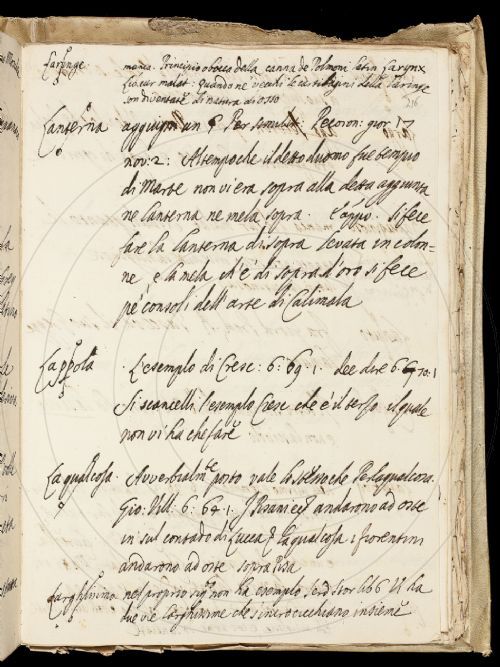 Laringe manca. Principio o bocca della canna de Polmoni latin Larynx
Lio. cur. malat: quando ne vecchi le cartilagini della Laringe
son diventate di natura di osso
216
Lanterna aggiugni un § Per simil: Pecoron: gior 17
nov: 2: Al tempo che il detto duomo fue tempio
di Marte non vi era sopra alla detta aggiunta
ne lanterna ne mela sopra. E appo. si fece
fare la lanterna di sopra levata in colon-
ne e la mela ch'è di sopra d'oro si fece
pe' consoli dell'arte di Calimala
Lappola L'esempio di Cresc: 6: 69: 1. dee dire 6: 70: 1
Si scancelli l'esempio Cresc che è il terzo il quale
non vi ha che fare
La qualcosa Avverbialmte posto vale lo stesso che Per la qual cosa.
Gio: Vill: 6: 64: 1. I Pisani andarono ad oste
in sul contado di Lucca la qualcosa i fiorentini
andarono ad oste sopra Pisa
Larghissimo nel proprio sign non ha esempio Stor lib 6 Vi ha
due vie larghissime che s'incrocicchiano insieme